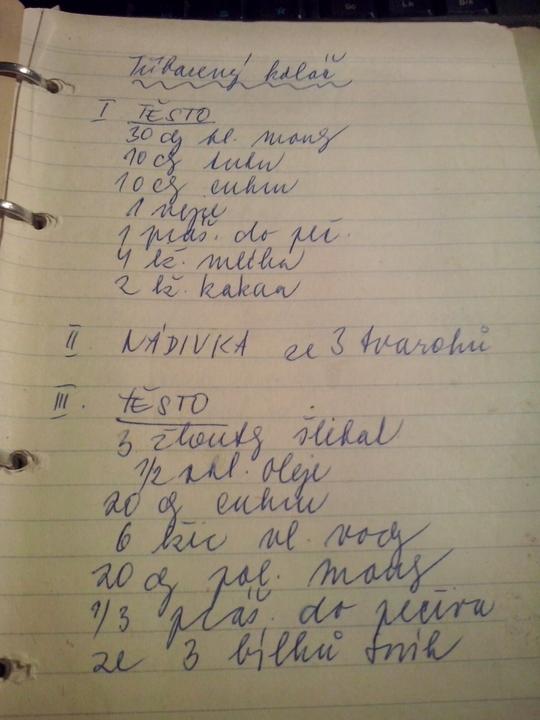 Tříbarevný koláč
I TĚSTO
30 dg hl. mouky
10 dg tuku
10 dg cukru
1 vejce
1 práš. do peč.
4 lž. mléka
2 lž. kakaa
II NÁDIVKA ze 3 tvarohů
III. TĚSTO
3 žloutky šlehat
1/2 skl. oleje
20 dg cukru
6 lžic vl. vody
20 dg pol. mouky
1/3 práš. do pečiva
ze 3 bílků sníh